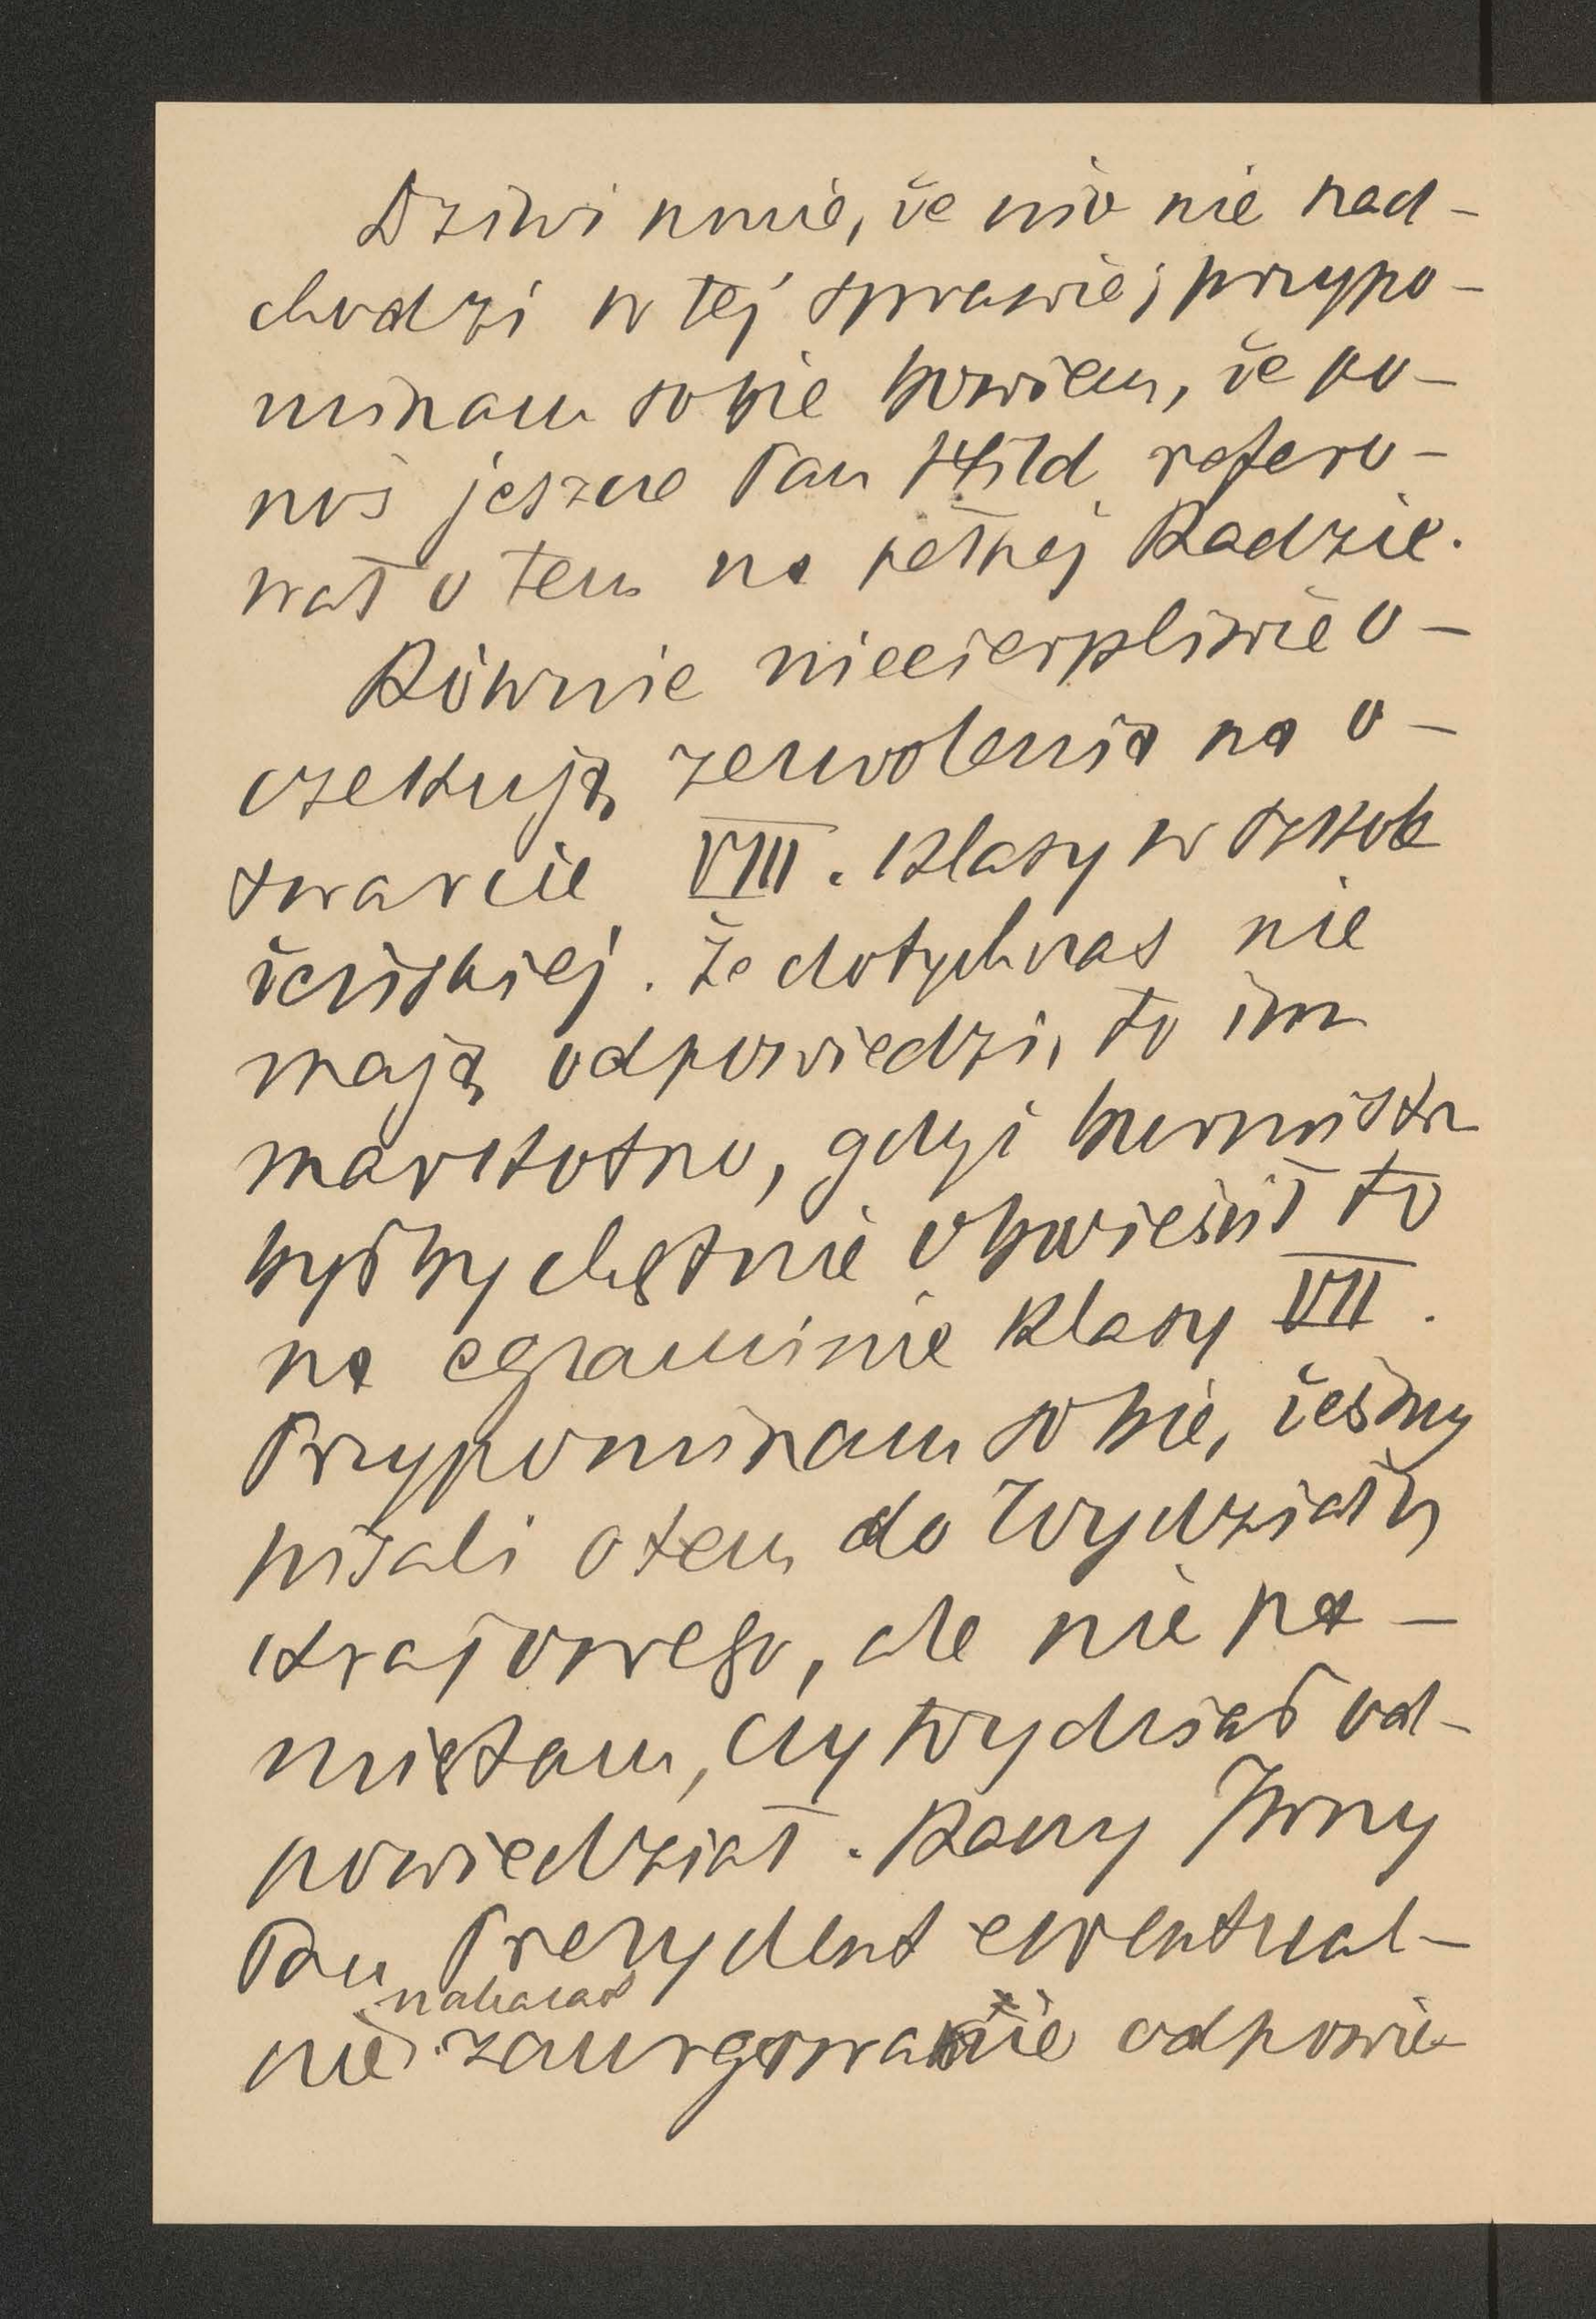 Dziwi mnie, że nic nie nad-
chodzi w tej sprawie; przypo-
minam sobie bowiem, że po-
noś jeszcze Pan Hild refero-
wał o tem na pełnej Radzie.
Równie niecierpliwie o-
czekują zezwolenia na o-
twarcie VIII. klasy w szkole
żeńskiej. Że dotychczas nie
mają odpowiedzi, to im
markotno, gdyż burmistrz
byłby chętnie obwieścił to
na egzaminie klasy VII.
Przypominam sobie, żeśmy
pisali o tem do Wydziału
krajowego, ale nie pa-
miętam, czy Wydział od-
powiedział. Raczy JWny
Pan Prezydent ewentual-
nie nakazać zaurgowanie odpowie-